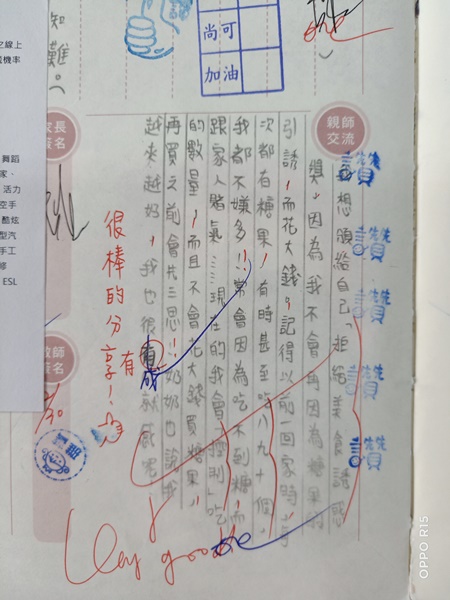 知難。
尚可
加油
親師
交流
我想頒給自己「拒絕美食誘惑
獎」因為我不會再因為糖果的
引誘,而花大錢。記得以前一回家時,
次都有糖果,有時甚至吃八九十個,
我都不嫌多!!常會因為吃不到糖,而
跟家人賭氣……現在的我會「控制」吃
的數量,而且不會花大錢買糖果,
再買之前會先三思!!奶奶也說我
越來越好,我也很有成就感
有
很棒的分享!
Very good
讚
讚
讚
讚
讚
家長
簽名
教師
簽名
之線上
機率
舞蹈
家、
活力
空手
酷炫
型汽
手工
ESL
OPPO R15